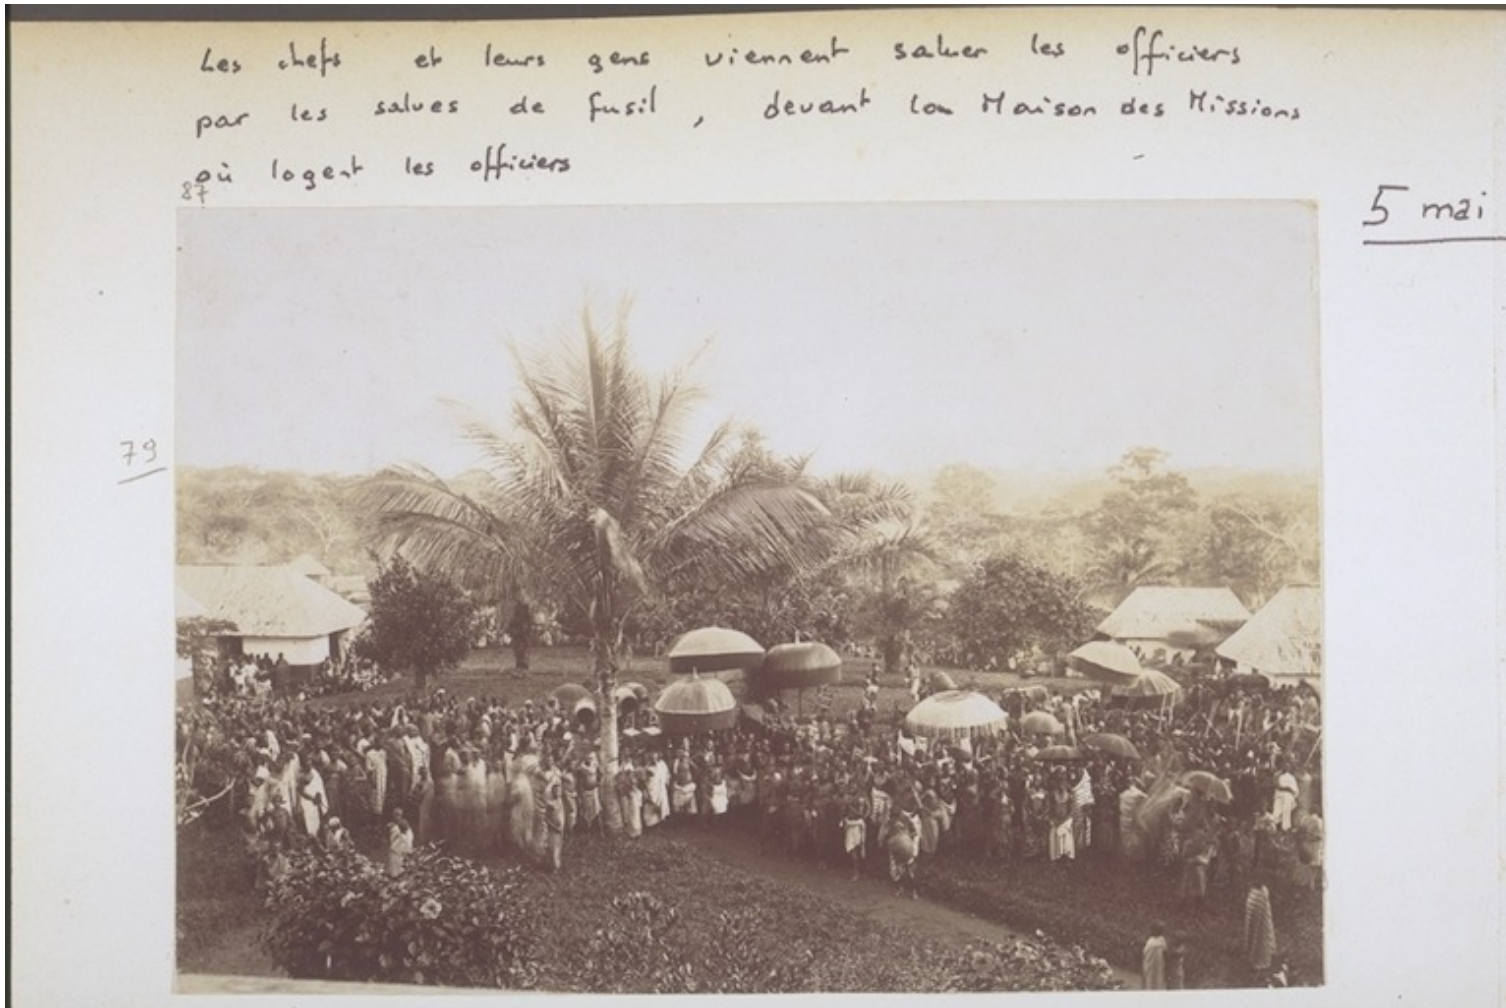 Les chefs et leurs gens viennent saluer les officiers
par les salves de fusil, devant la Maison des Missions
où logent les officiers
87
5 mai
79